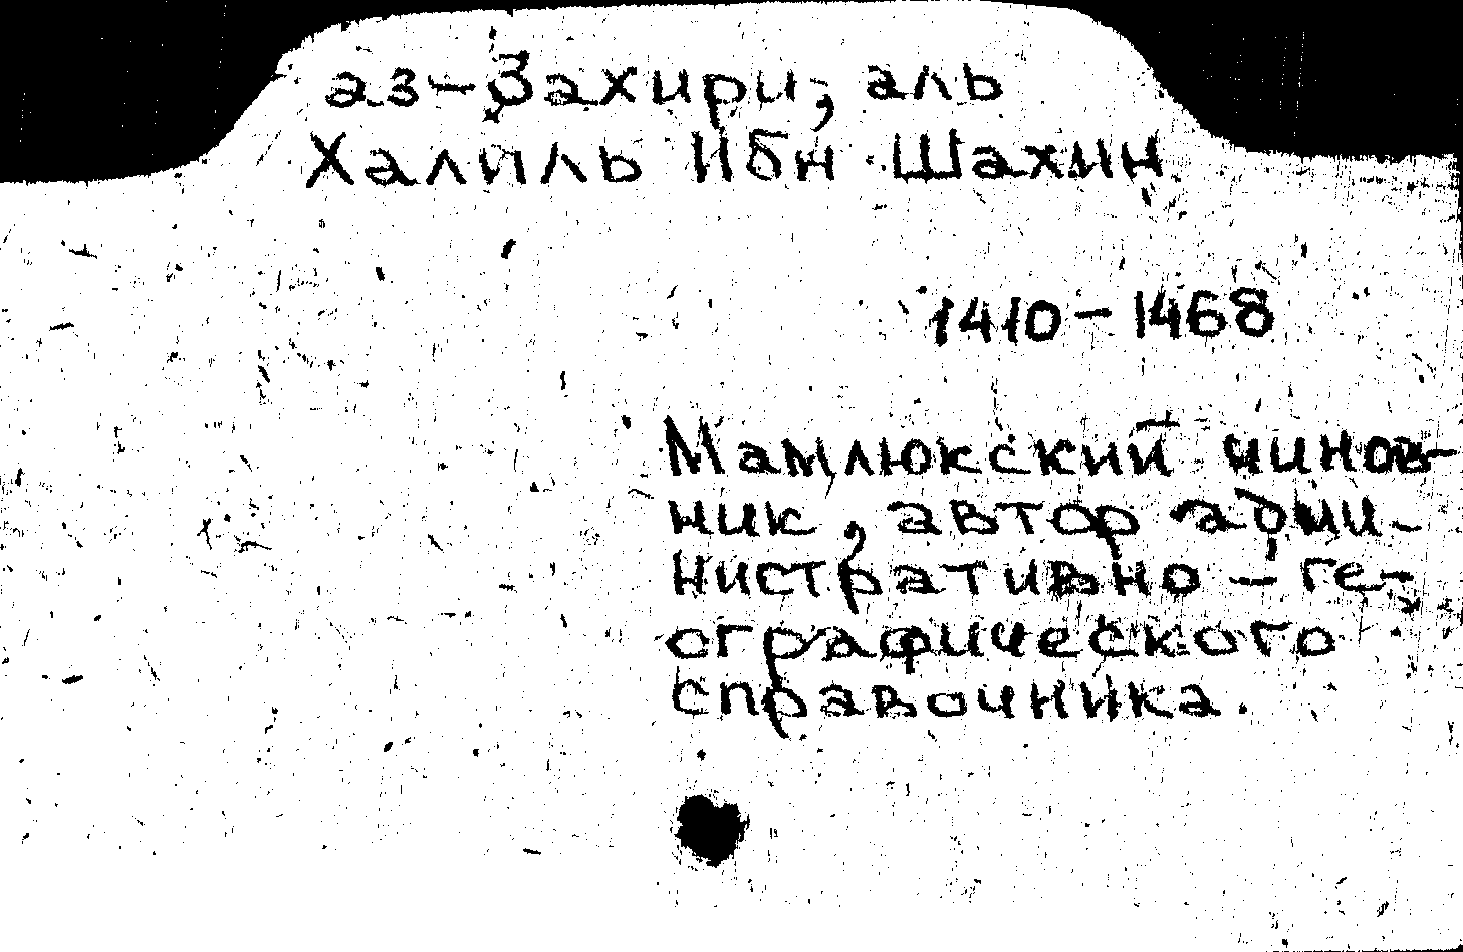 аз-Захири, аль
Халиль Ибн Шахин
1410-1468
Мамлюкский чинов-
ник, автор адми-
нистративно-ге-
ографического
справочника.